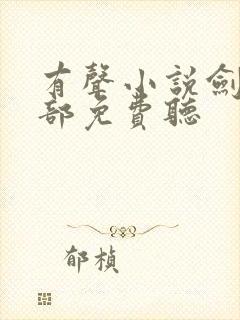 有聲小說劍
部免費聽
郁楨